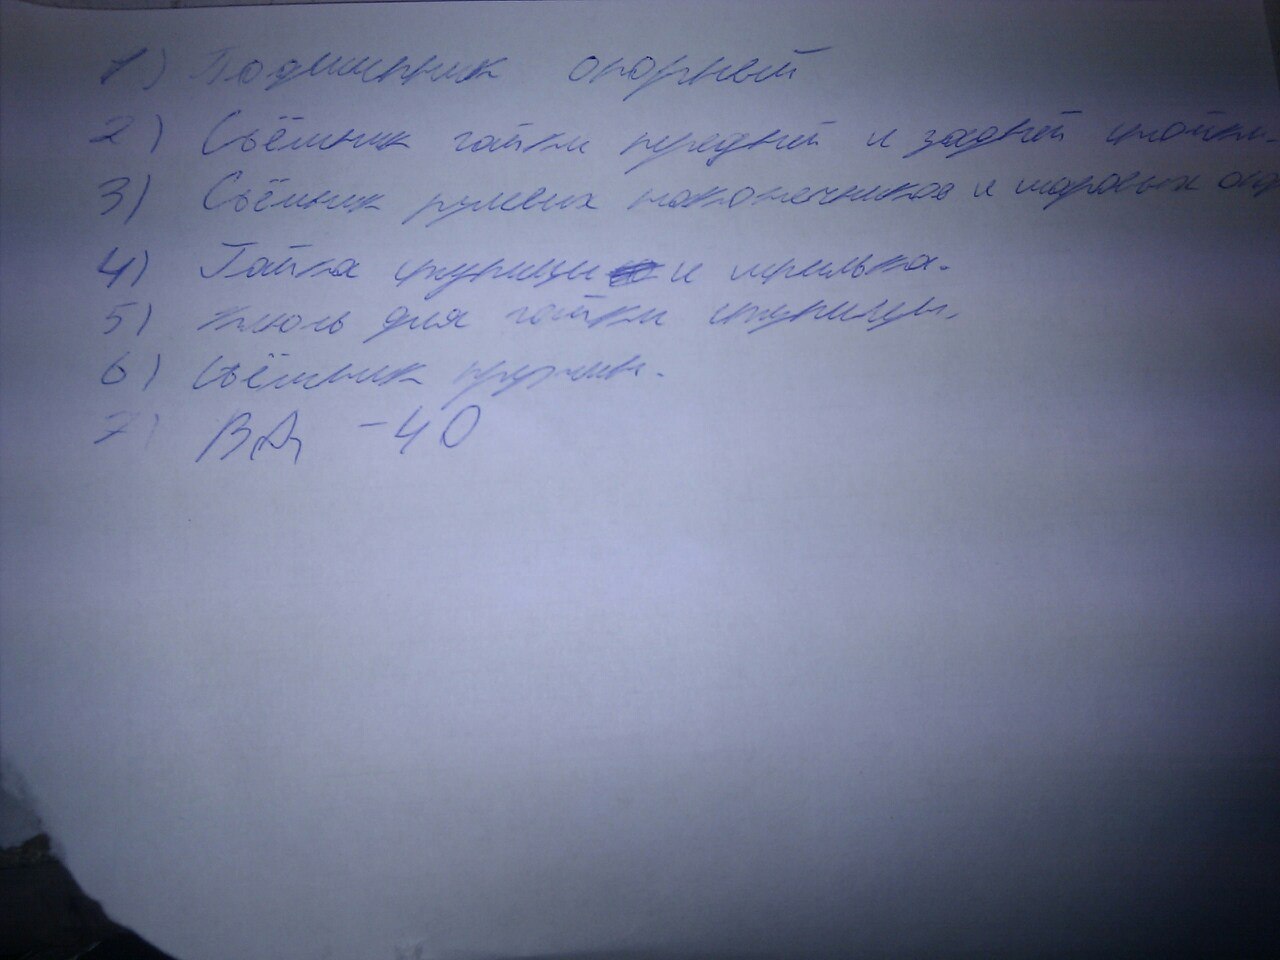 1) Подшипник опорный
2) Съёмник гайки передней и задней стойки.
3) Съёмник рулевых наконечников и шаровых опор
4) Гайка ступицы и шпилька.
5) Ключь для гайки ступицы.
6) Съёмник пружин.
7) ВД -40